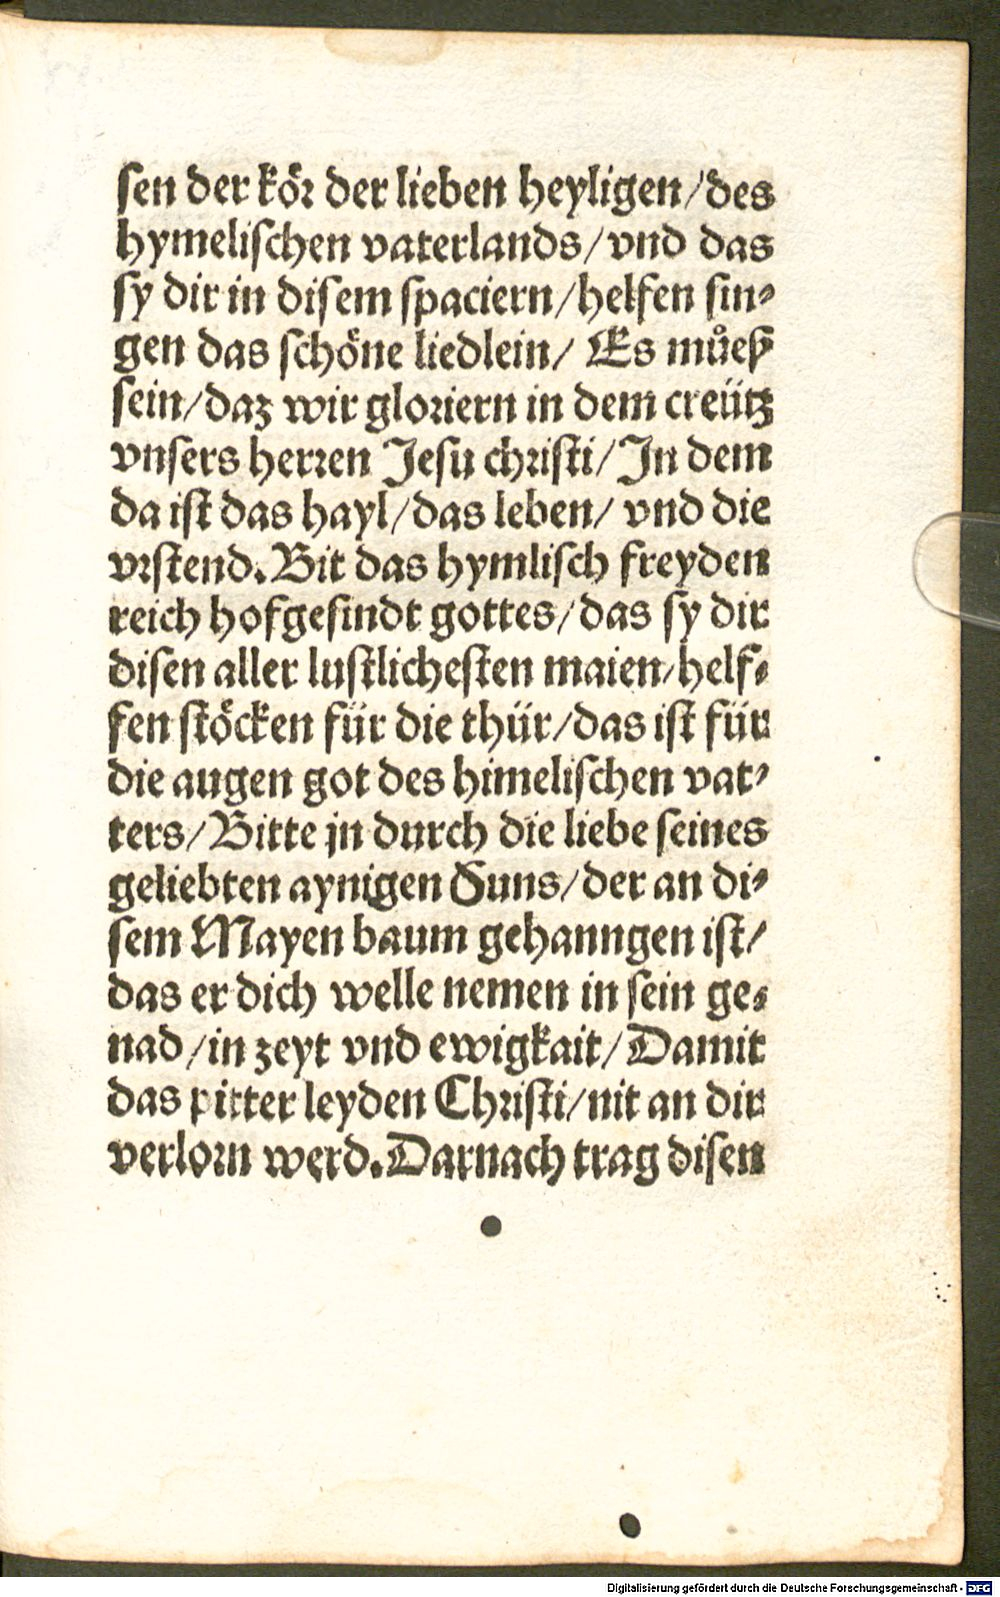 sen der kör der lieben heyligen/des
hymelischen vaterlands/vnd das
sy dir in disem spaciern/helfen sin-
gen das schöne liedlein/ Es můeß
sein/daz wir gloriern in dem creütz
vnsers herren Jesu christi/In dem
da ist das hayl/das leben/ vnd die
vrstend. Bit das hymlisch freyden
reich hofgesindt gottes/das sy dir
disen aller lustlichesten maien/helf-
fen stöcken für die thür/das ist für
die augen got des himelischen vat-
ters/Bitte jn durch die liebe seines
geliebten aynigen Suns/der an di-
sem Mayen baum gehanngen ist/
das er dich welle nemen in sein ge-
nad/in zeyt vnd ewigkait/Damit
das pitter leyden Christi/nit an dir
verlorn werd. Darnach trag disen
Digitalisierung gefördert durch die Deutsche Forschungsgemeinschaft - DFG